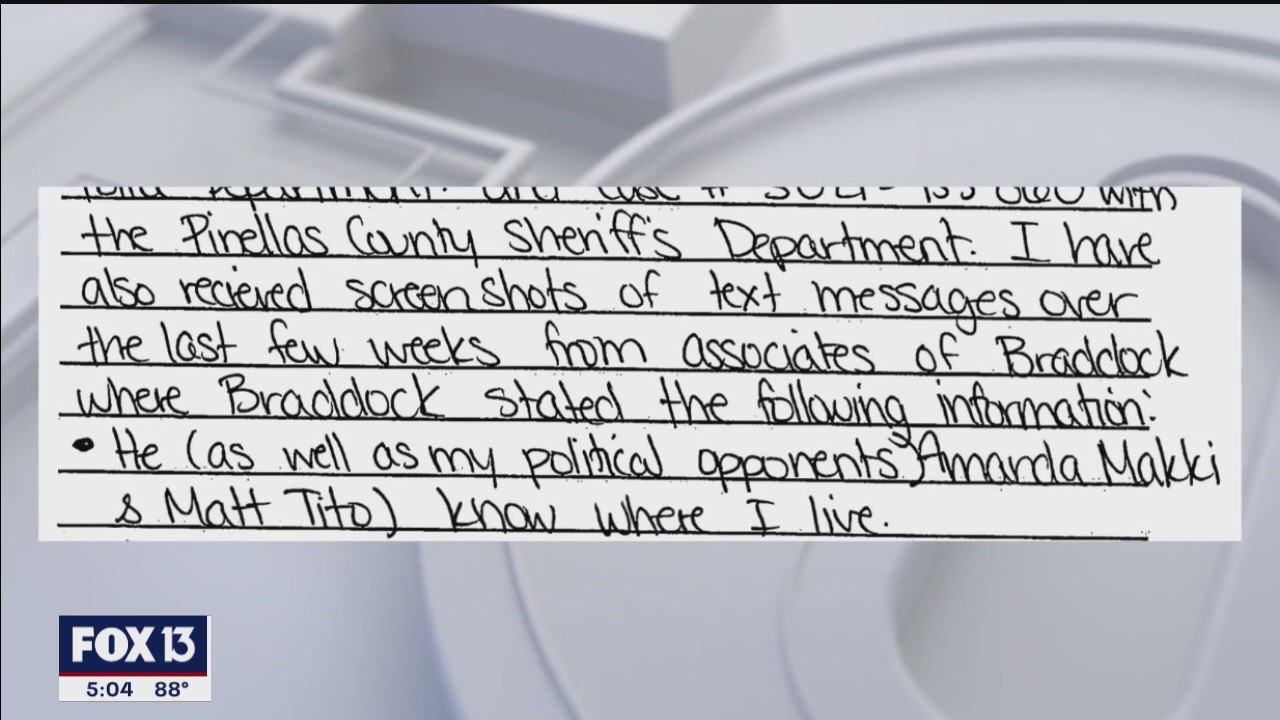 with
the Pinellas County Sheriff's Department. I have
also recieved screenshots of text messages over
the last few weeks from associates of Braddock
where Braddock stated the following information:
• He (as well as my political opponents, Amanda Makki
& Matt Tito) know where I live.
FOX 13
5:04 88°